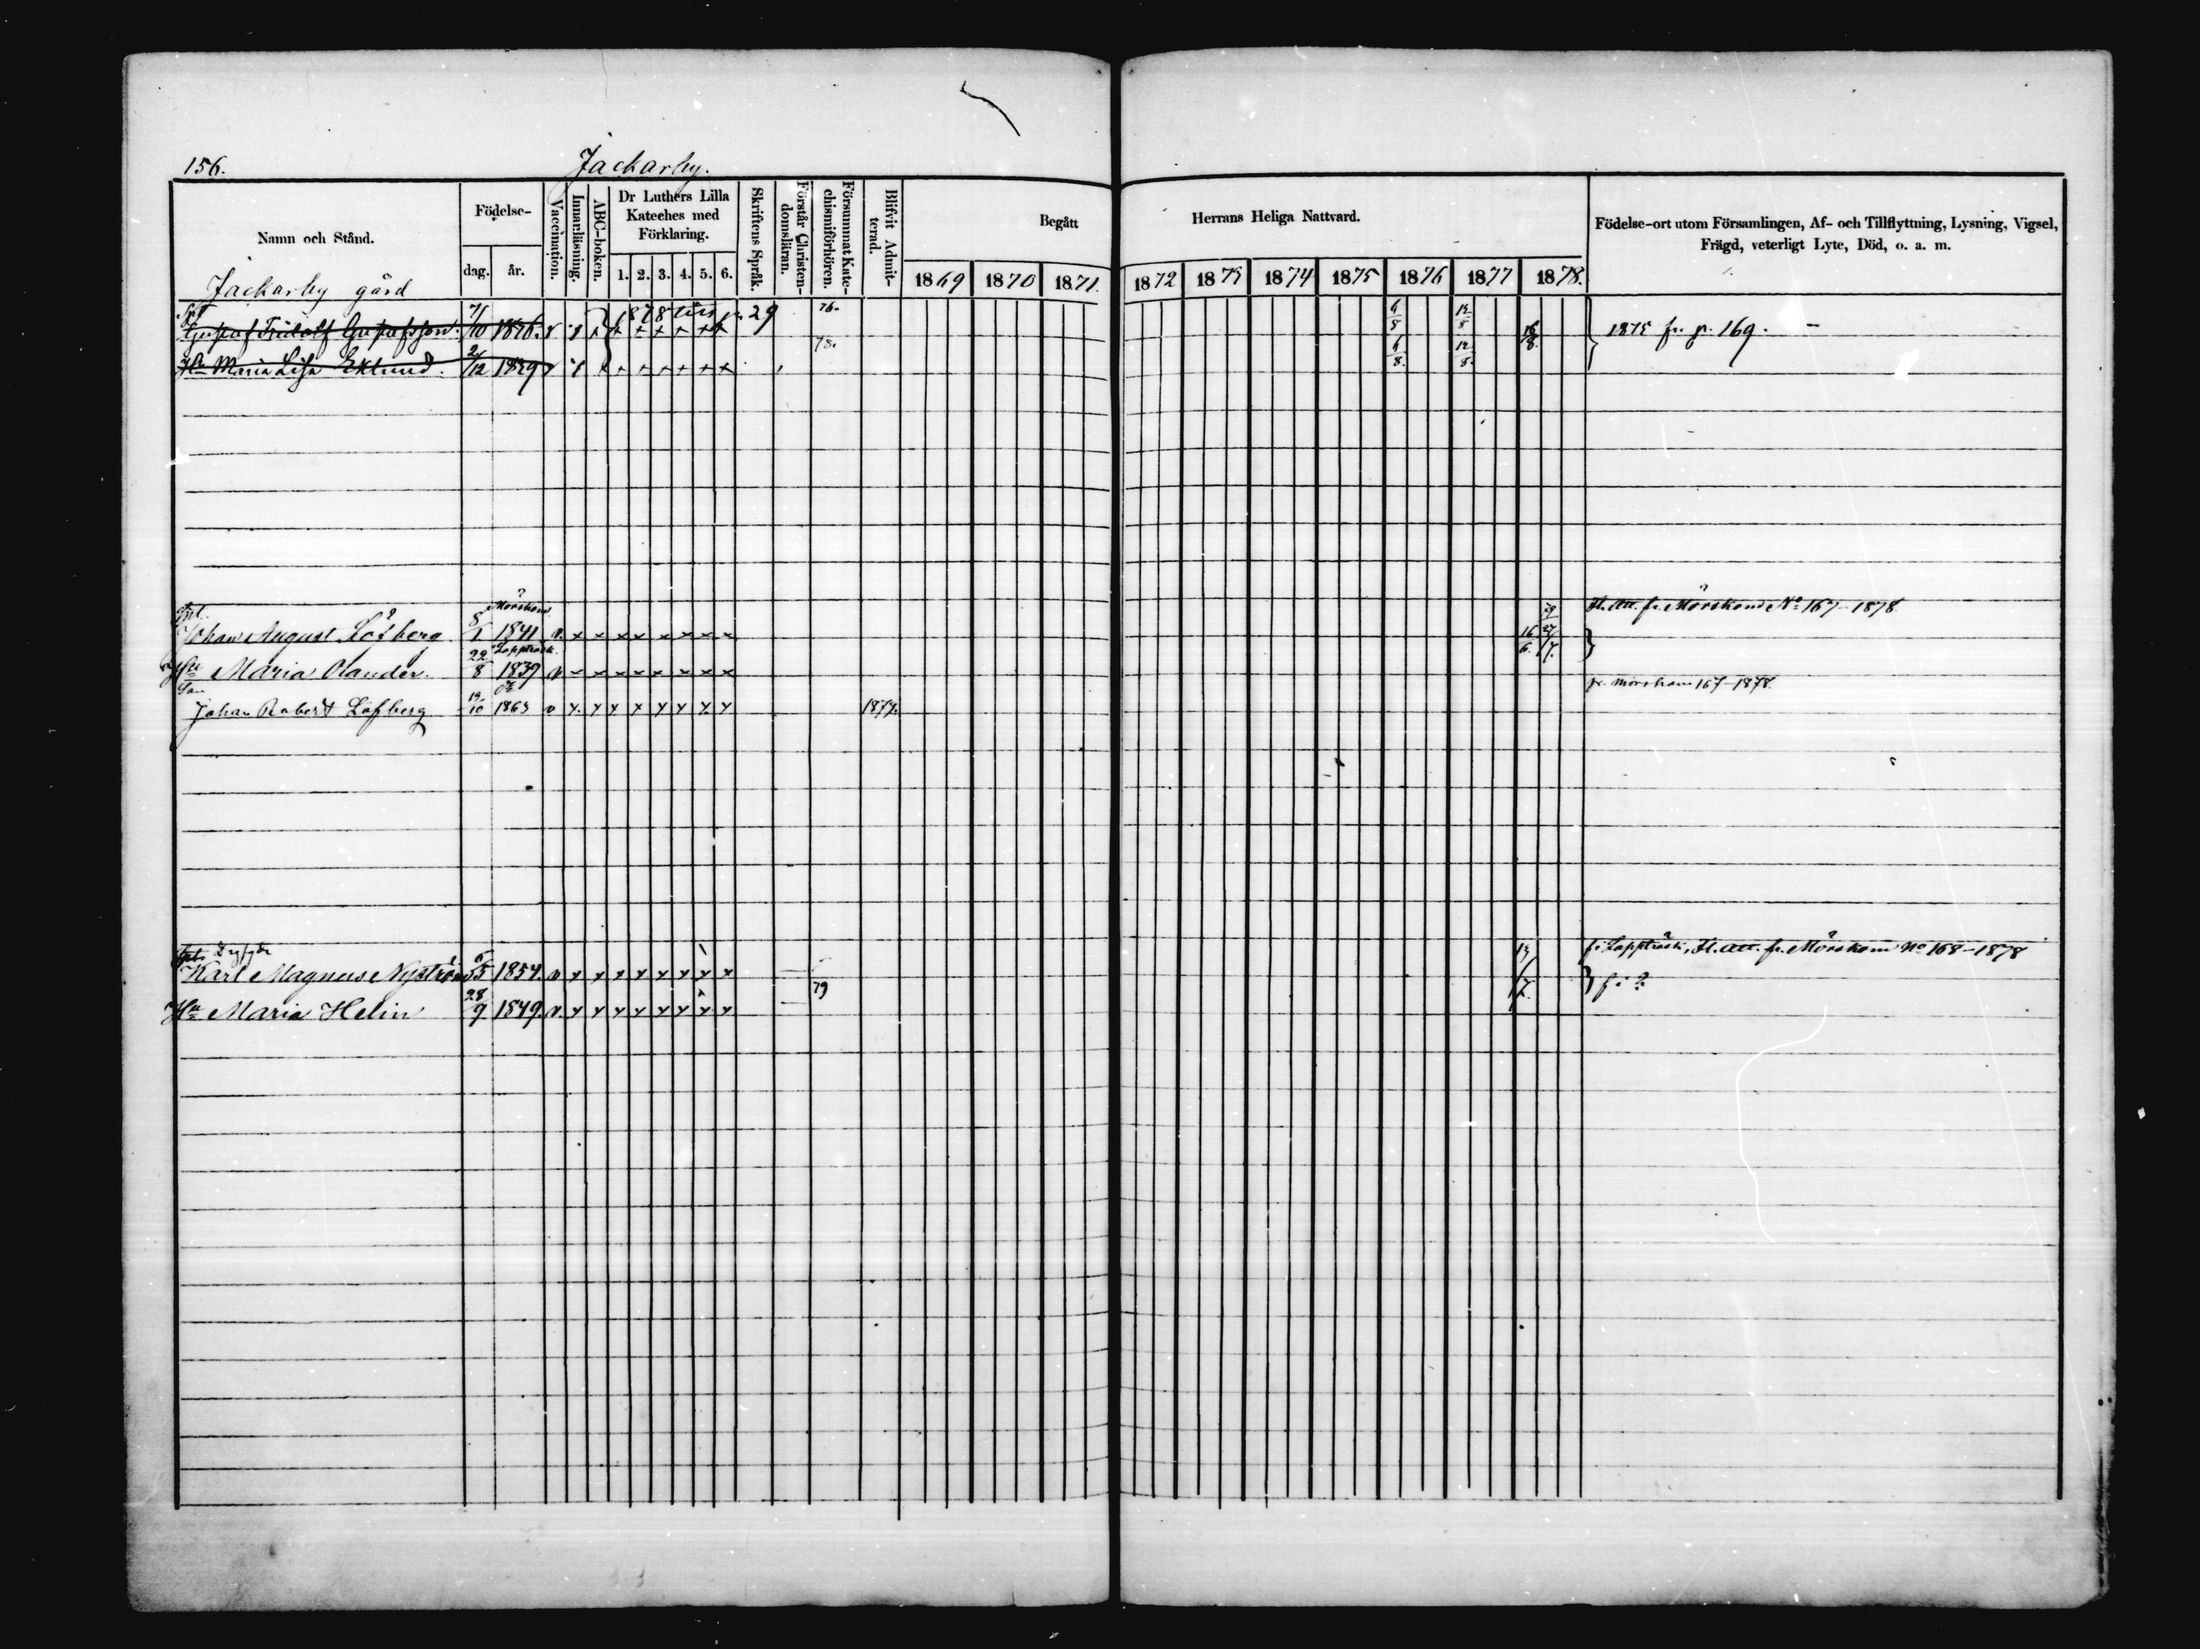 156. Jackarby.
Namn och Stånd. Födelse- dag. år. Vaccination. Innanläsning. ABC-boken. Dr Luthers Lilla Kateches med Förklaring. 1. 2. 3. 4. 5. 6. Skriftens Språk. Förstår Christen-domsläran. Försummat Kate-chismiförhören. Blifvit Admit-terad. Begått Herrans Heliga Nattvard. Födelse-ort utom Församlingen, Af- och Tillflyttning, Lysning, Vigsel, Frägd, veterligt Lyte, Död, o. a. m.
1869 1870 1871. 1872 1873 1874 1875 1876 1877 1878.
Jackarby gård
1878 p. 29 76.
Gustaf Fridolf Gustafsson. 7/10 1836. v 6/8 12/8 16/8 } 1875 fr. p. 169. —
78.
Hu Maria Lisa Eklund. 2/12 1839 v 6/8. 12/8.
Mörskom Fl. att. fr. Mörskom No 167-1878
Johan August Löfberg. 8/1 1841 v. x x x x x x x x x 16/6. 27/7. }
Lappträsk.
Hu Maria Olander. 22/8 1839 v x x x x x x x x x
Son fr. Mörskom 167-1878.
Johan Robert Löfberg 19/10 1863 v x x x x x x x x 1877.
f. i Lappträsk, Fl. att. fr. Mörskom No 168-1878
Karl Magnus Nyström 1854. v x x x x x x x x x } f. i ?
79
Hu Maria Helin 28/9 1849. v. x x x x x x x x x